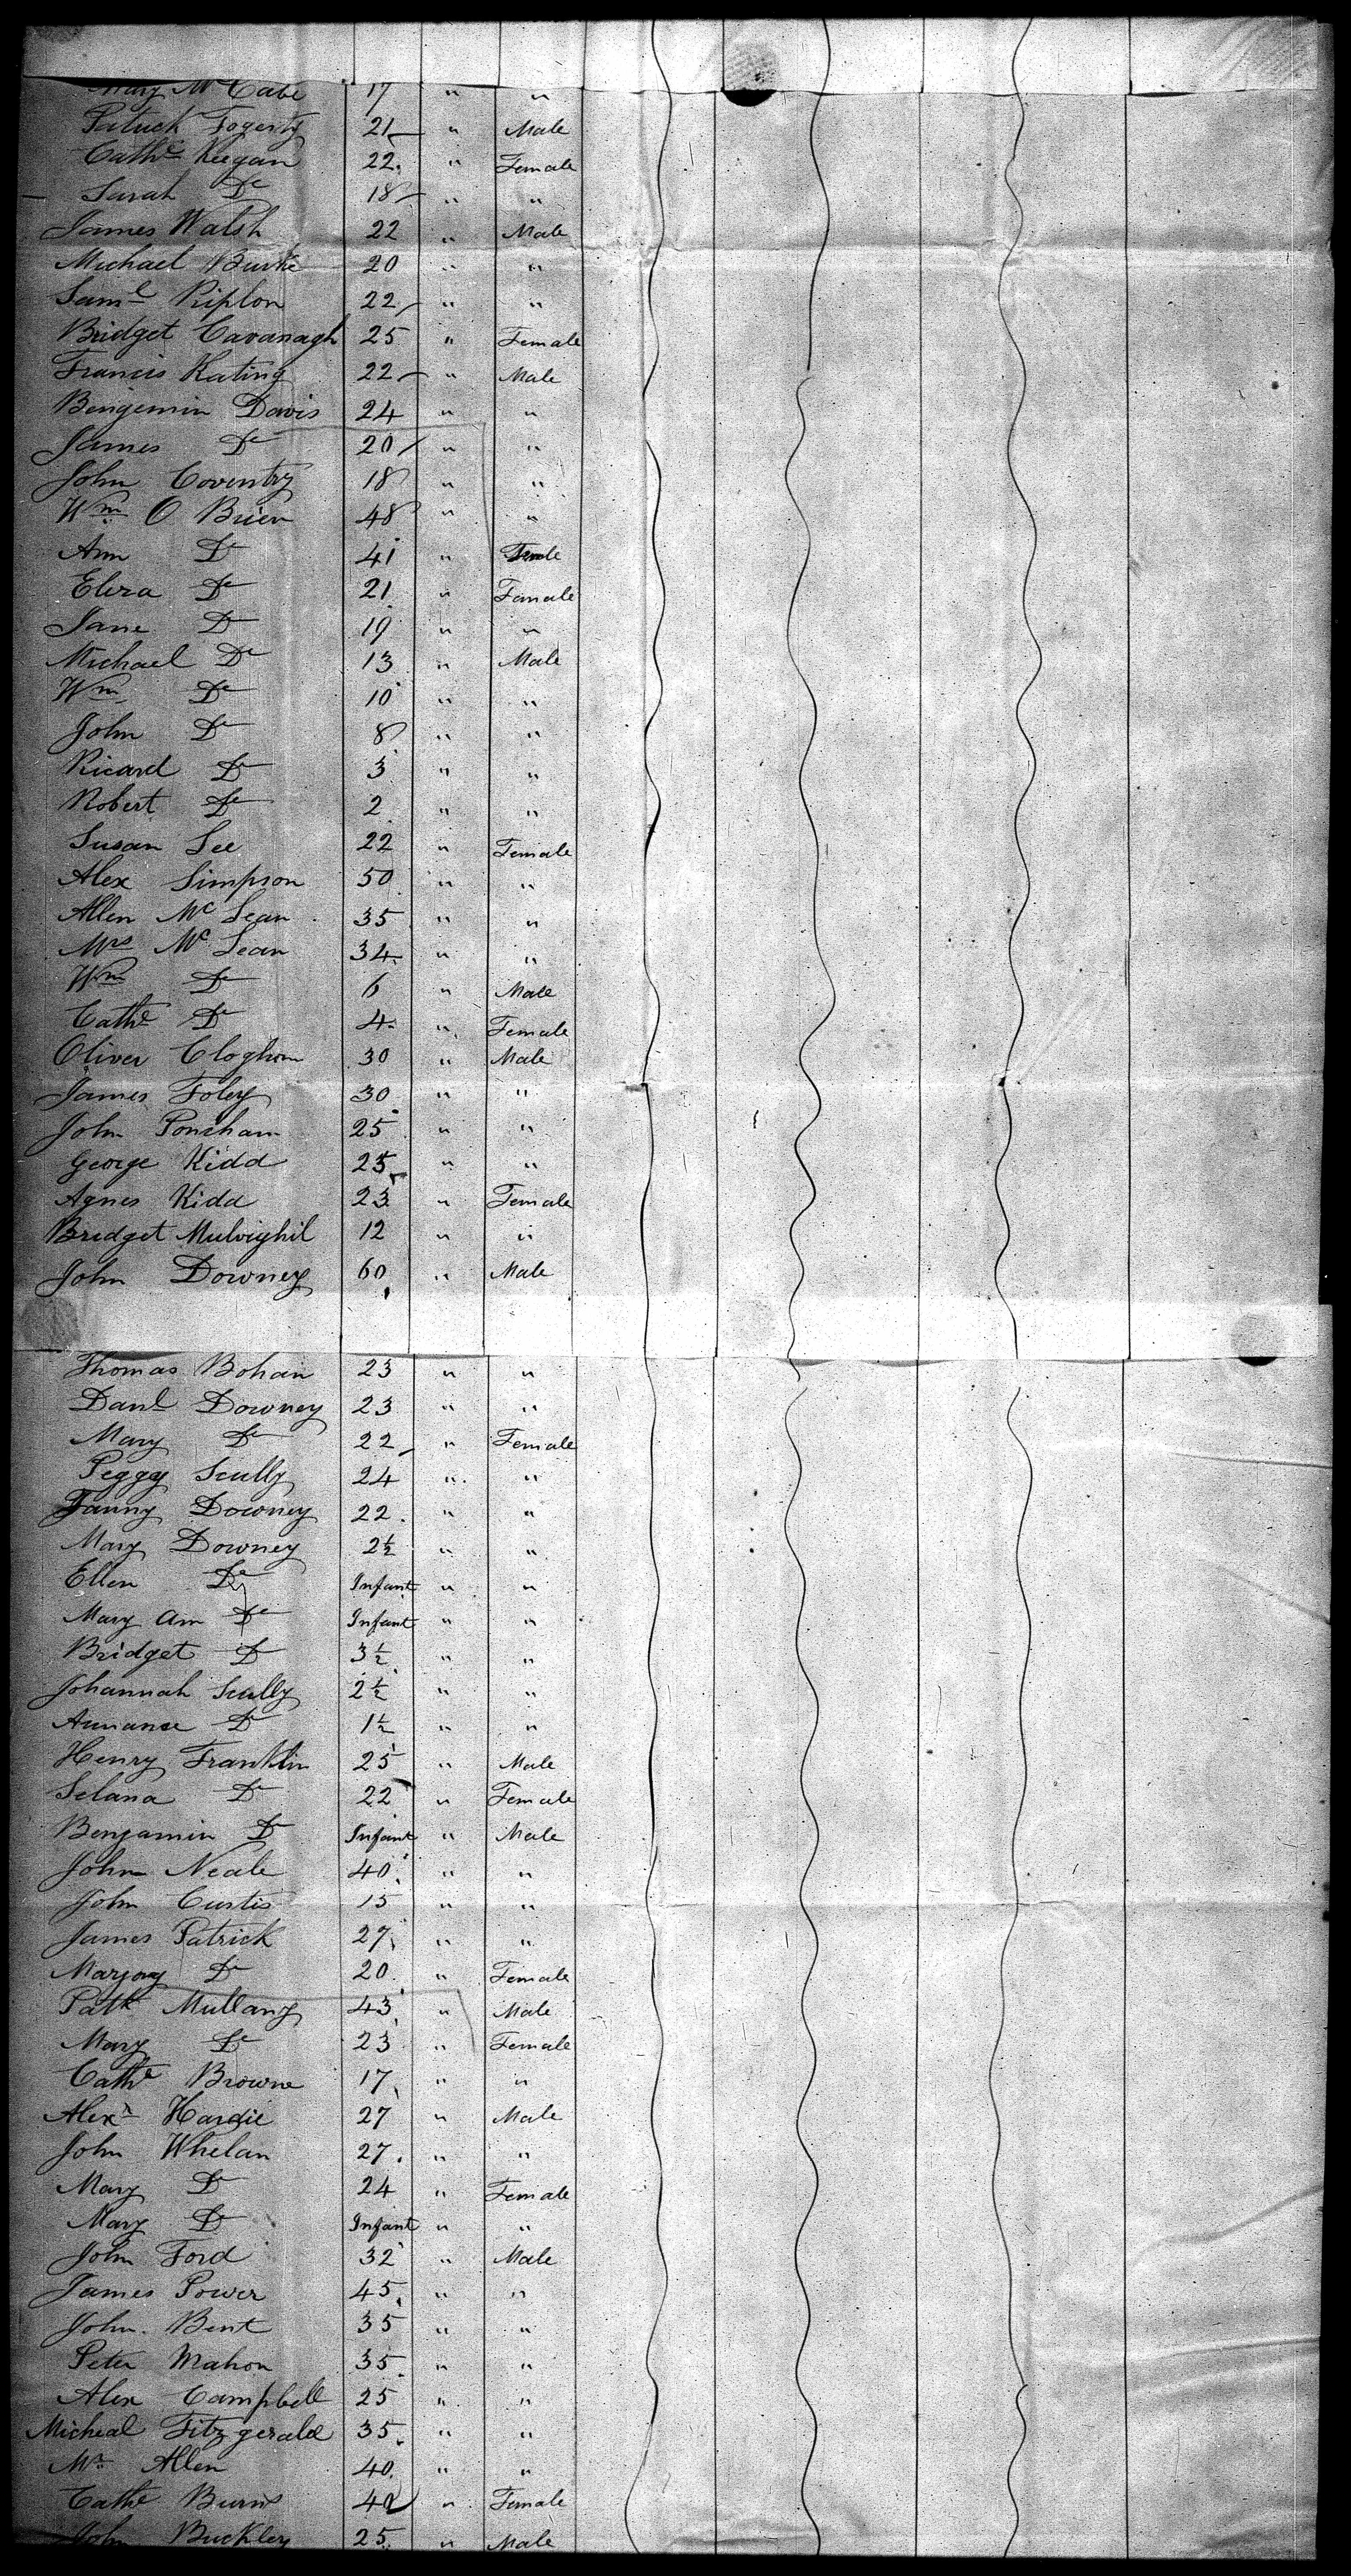 Mary McCabe 17 " "
Patrick Fogerty 21 " Male
Cathe Keegan 22 " Female
Sarah Do 18 " "
James Walsh 22 " Male
Michael Burke 20 " "
Saml Riplon 22 " "
Bridget Cavanagh 25 " Female
Francis Kating 22 " Male
Bengemin Davis 24 " "
James Do 20 " "
John Coventry 18 " "
Wm O Brien 48 " "
Ann Do 41 " Female
Eliza Do 21 " Female
Jane Do 19 " "
Michael Do 13 " Male
Wm Do 10 " "
John Do 8 " "
Ricard Do 3 " "
Robert Do 2 " "
Susan Lee 22 " Female
Alex Simpson 50 " "
Allen Mc Lean 35 " "
Mrs Mc Lean 34 " "
Wm Do 6 " Male
Cathe Do 4 " Female
Oliver Cloghom 30 " Male
James Foley 30 " "
John Ponsham 25 " "
George Kidd 25 " "
Agnes Kidd 23 " Female
Bridget Mulvighil 12 " "
John Downey 60 " Male
Thomas Bohan 23 " "
Danl Downey 23 " "
Mary Do 22 " Female
Peggy Scully 24 " "
Fanny Downey 22 " "
Mary Downey 2½ " "
Ellen Do Infant " "
Mary Ann Do Infant " "
Bridget Do 3½ " "
Johannah Scully 2½ " "
Do 1½ " "
Henry Franklin 25 " Male
Selana Do 22 " Female
Benjamin Do Infant " Male
John Neale 40 " "
John Curtis 15 " "
James Patrick 27 " "
Marjory Do 20 " Female
Patk Mullany 43 " Male
Mary Do 23 " Female
Cathe Browne 17 " "
Alexr Hardie 27 " Male
John Whelan 27 " "
Mary Do 24 " Female
Mary Do Infant " "
John Ford 32 " Male
James Power 45 " "
John Bent 35 " "
Peter Mahon 35 " "
Alex Campbell 25 " "
Micheal Fitzgerald 35 " "
Mr Allen 40 " "
Cathe Burns 40 " Female
John Buckley 25 " Male